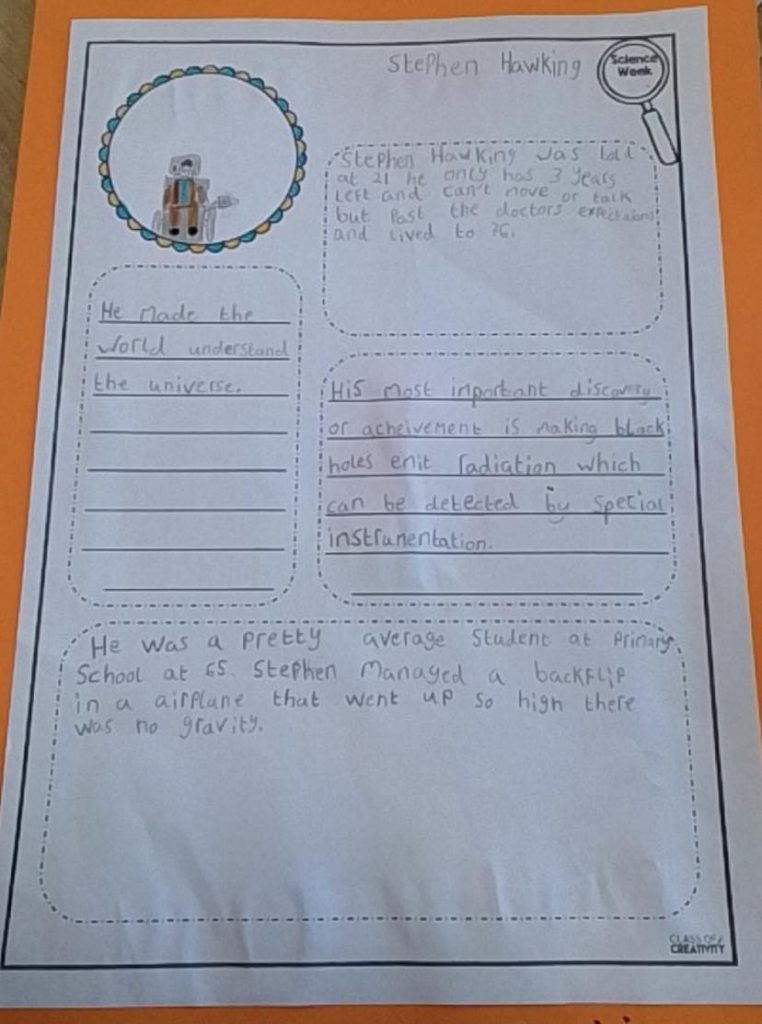 Stephen Hawking
Science
Week
Stephen Hawking was told
at 21 he only has 3 years
left and can't move or talk
but Past the doctors expectaions
and lived to 76.
He made the
world understand
the universe.
His most important discovery
or acheivement is making black
holes emit radiation which
can be detected by special
instrumentation.
He was a pretty average student at primary
School at 65. Stephen Managed a backflip
in a airplane that went up so high there
was no gravity.
CLASS OF
CREATIVITY